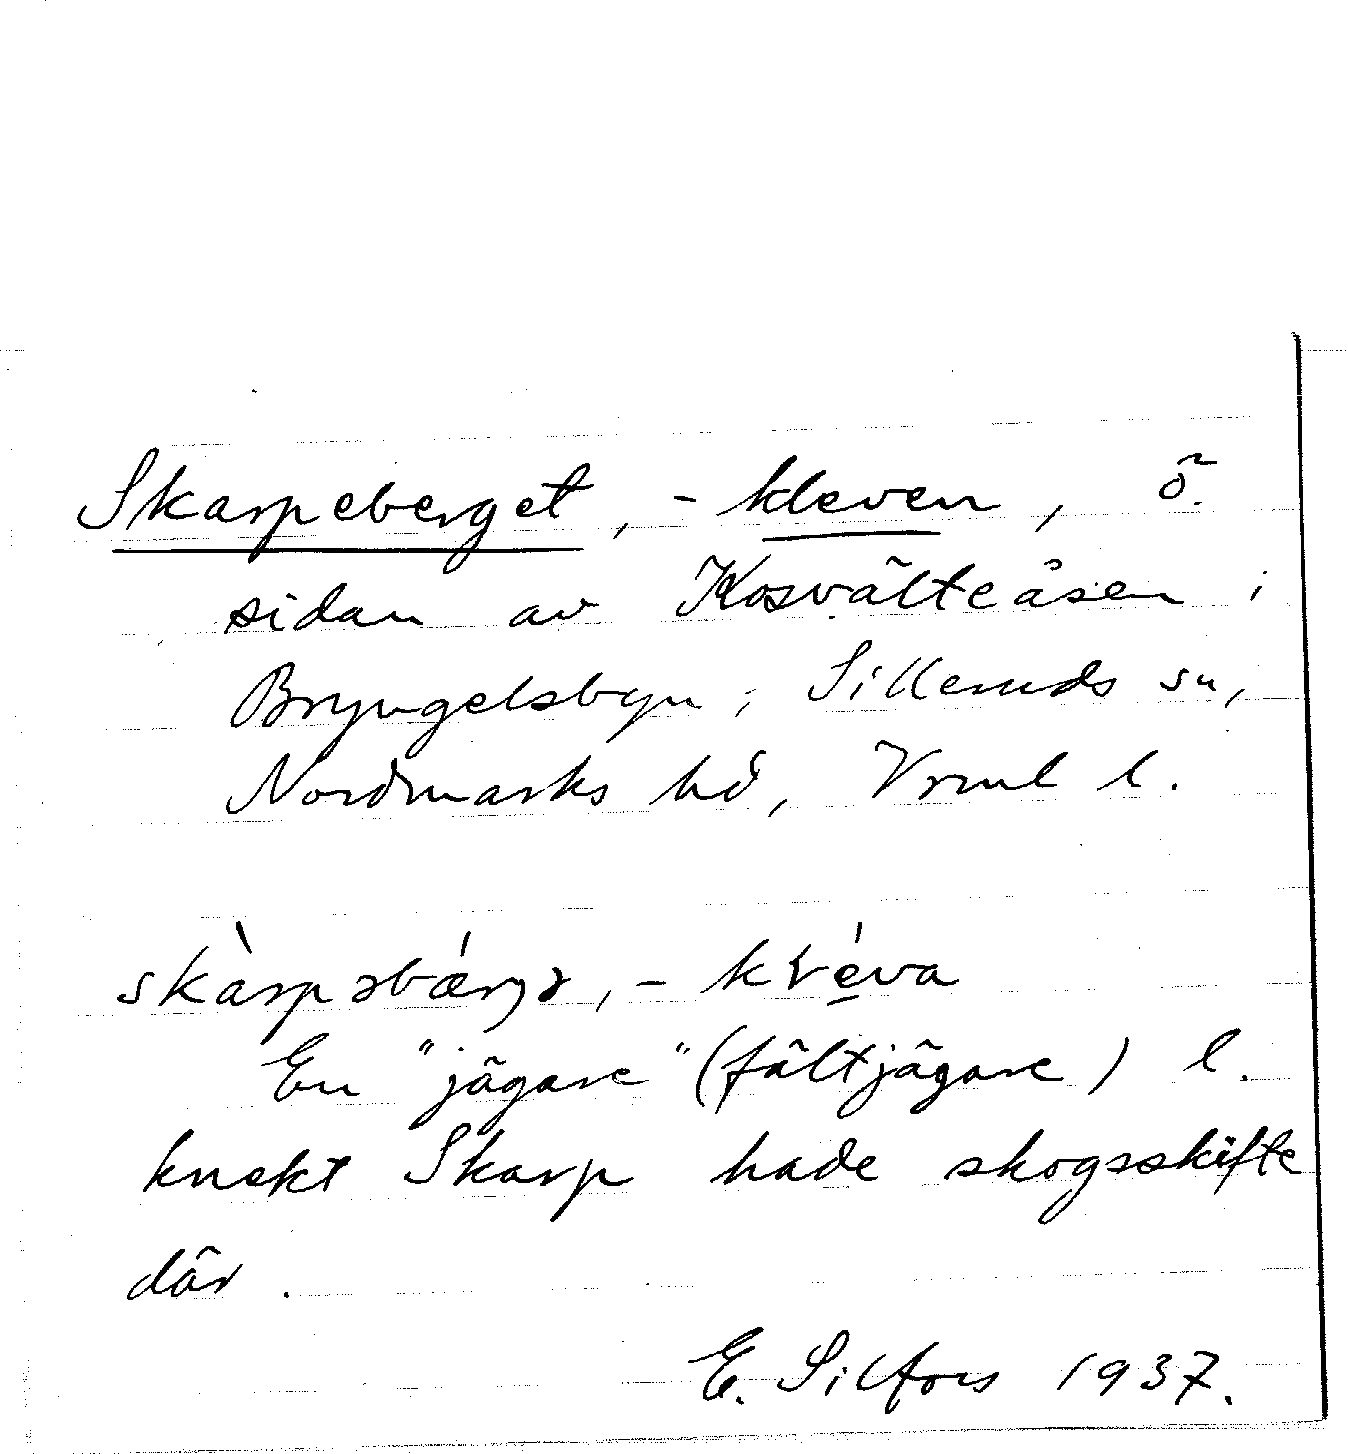 Skarpeberget, -kleven, ö.
sidan av Kosvälteåsen i
Bryngelsbyn, Silleruds sn,
Nordmarks hd, Vrml l.
skàrpəbǽrjə, -kɽéva
En "jägare" (fältjägare) l.
knekt Skarp hade skogsskifte
där.
E. Silfors 1937.